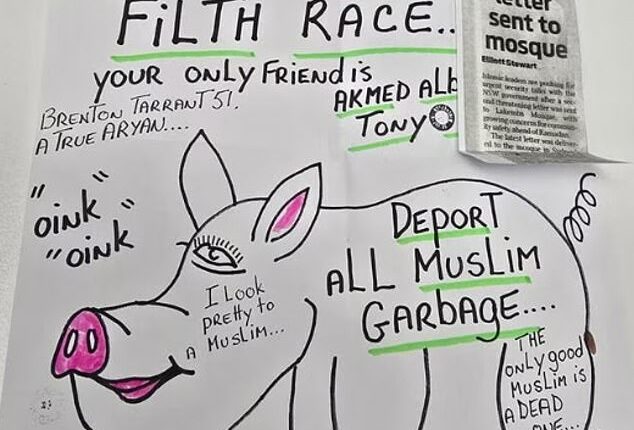 FiLTH RACE..
YOUR ONLY FRiEND iS
AKMED ALB
TONY
BRENTON TARRANT 51.
A TRUE ARYAN....
"OINK"
"OINK
I LOOK
PRETTY to
A MUSLIM...
DEPORT
ALL MUSLIM
GARBAGE....
THE
ONLY good
MUSLIM iS
A DEAD
ONE...
letter
sent to
mosque
Elliott Stewart
Islamic leaders are pushing for
urgent security talks with the
NSW government after a sec-
ond threatening letter was sent
to Lakemba Mosque, with
growing concerns for communi-
ty safety ahead of Ramadan.
The latest letter was deliver-
ed to the mosque in